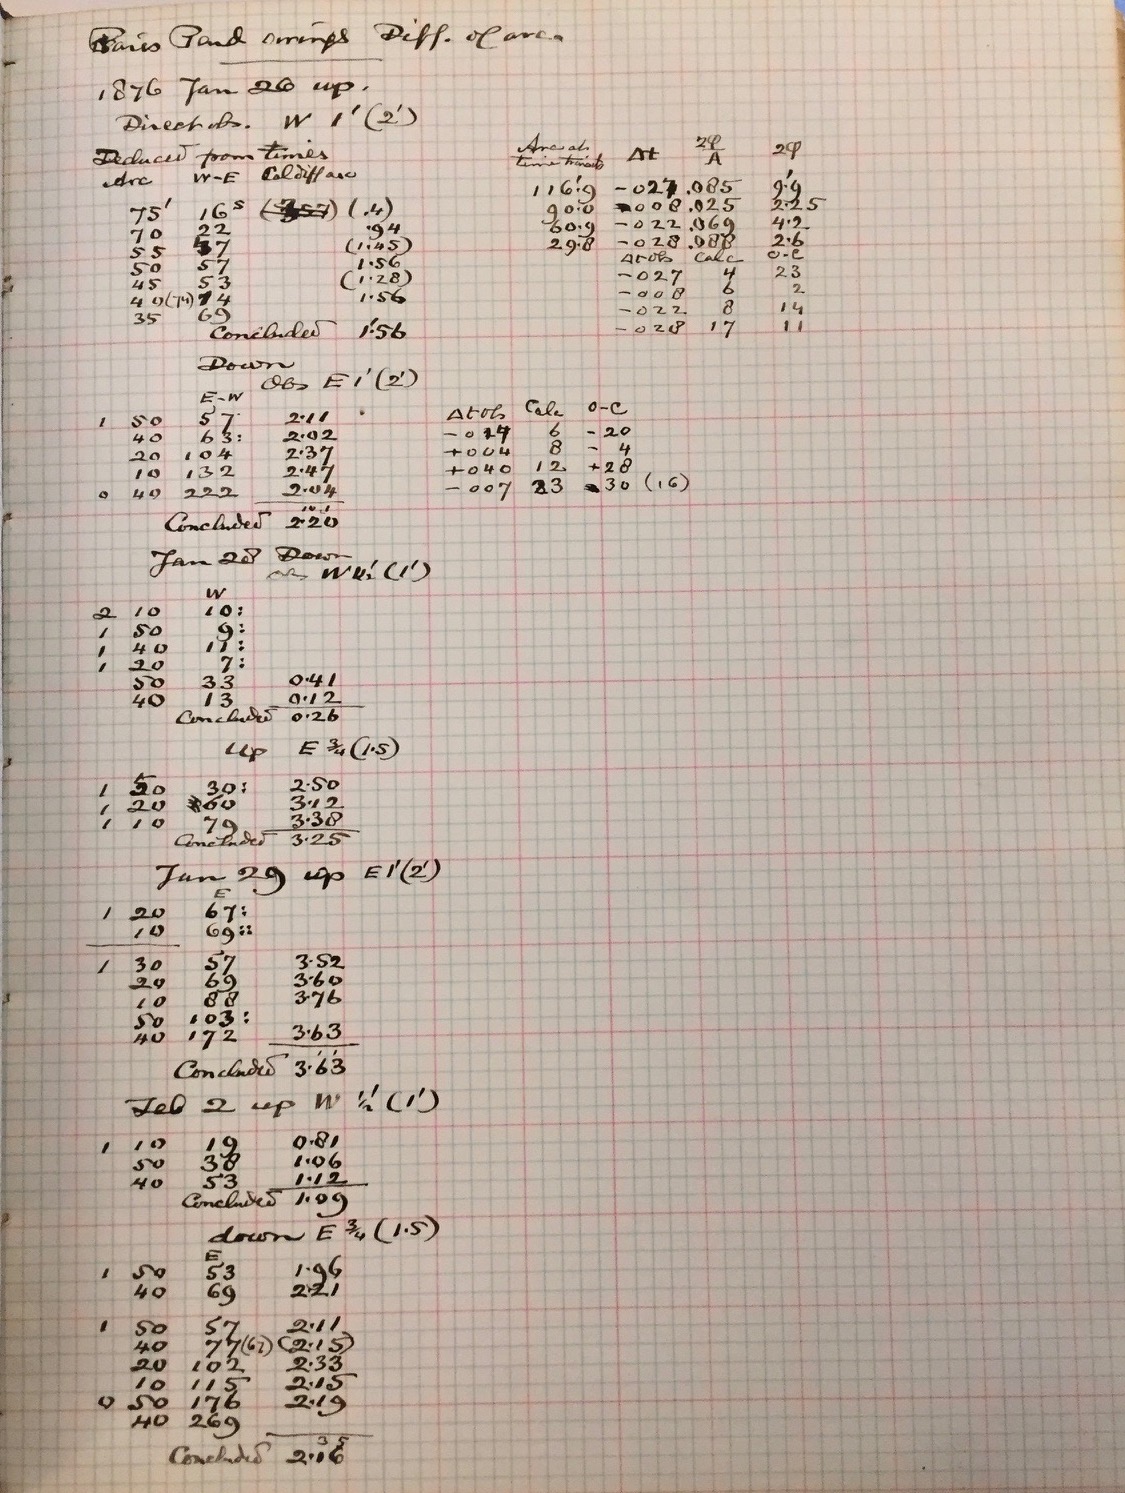 Paris Pend swings Diff. of arc.
1876 Jan 26 up.
Direct obs. W 1' (2')
Deduced from times
Arc W-E Cal diff arc
75' 16s (.4)
70 22 .94
55 37 (1.45)
50 57 1.56
45 53 (1.28)
40 (74) 74 1.56
35 69
Concluded 1'.56
Arc at
Δt 2φ/A 2φ
116'.9 -027 .085 9'.9
90.0 -008 .025 2.25
60.9 -022 .069 4.2
29.8 -028 .088 2.6
Δt obs Calc O-C
-027 4 23
-008 6 2
-022 8 14
-028 17 11
Down
Obs E 1' (2')
E-W
1 50 57 2.11
40 63: 2.02
20 104 2.37
10 132 2.47
0 40 222 2.04
Concluded 2.20
Δt obs Calc O-C
-014 6 -20
+004 8 - 4
+040 12 +28
-007 23 -30 (16)
Jan 28 Down
obs W ½' (1')
W
2 10 10:
1 50 9:
1 40 11:
1 20 7:
50 33 0.41
40 13 0.12
Concluded 0.26
Up E ¾ (1.5)
1 50 30: 2.50
1 20 60 3.12
1 10 79 3.38
Concluded 3.25
Jan 29 up E 1' (2')
E
1 20 67:
10 69::
1 30 57 3.52
20 69 3.60
10 88 3.76
50 103:
40 172 3.63
Concluded 3.63
Feb 2 up W ½' (1')
1 10 19 0.81
50 38 1.06
40 53 1.12
Concluded 1.09
down E ¾ (1.5)
E
1 50 53 1.96
40 69 2.21
1 50 57 2.11
40 77 (67) (2.15)
20 102 2.33
10 115 2.15
0 50 176 2.19
40 269
Concluded 2.16